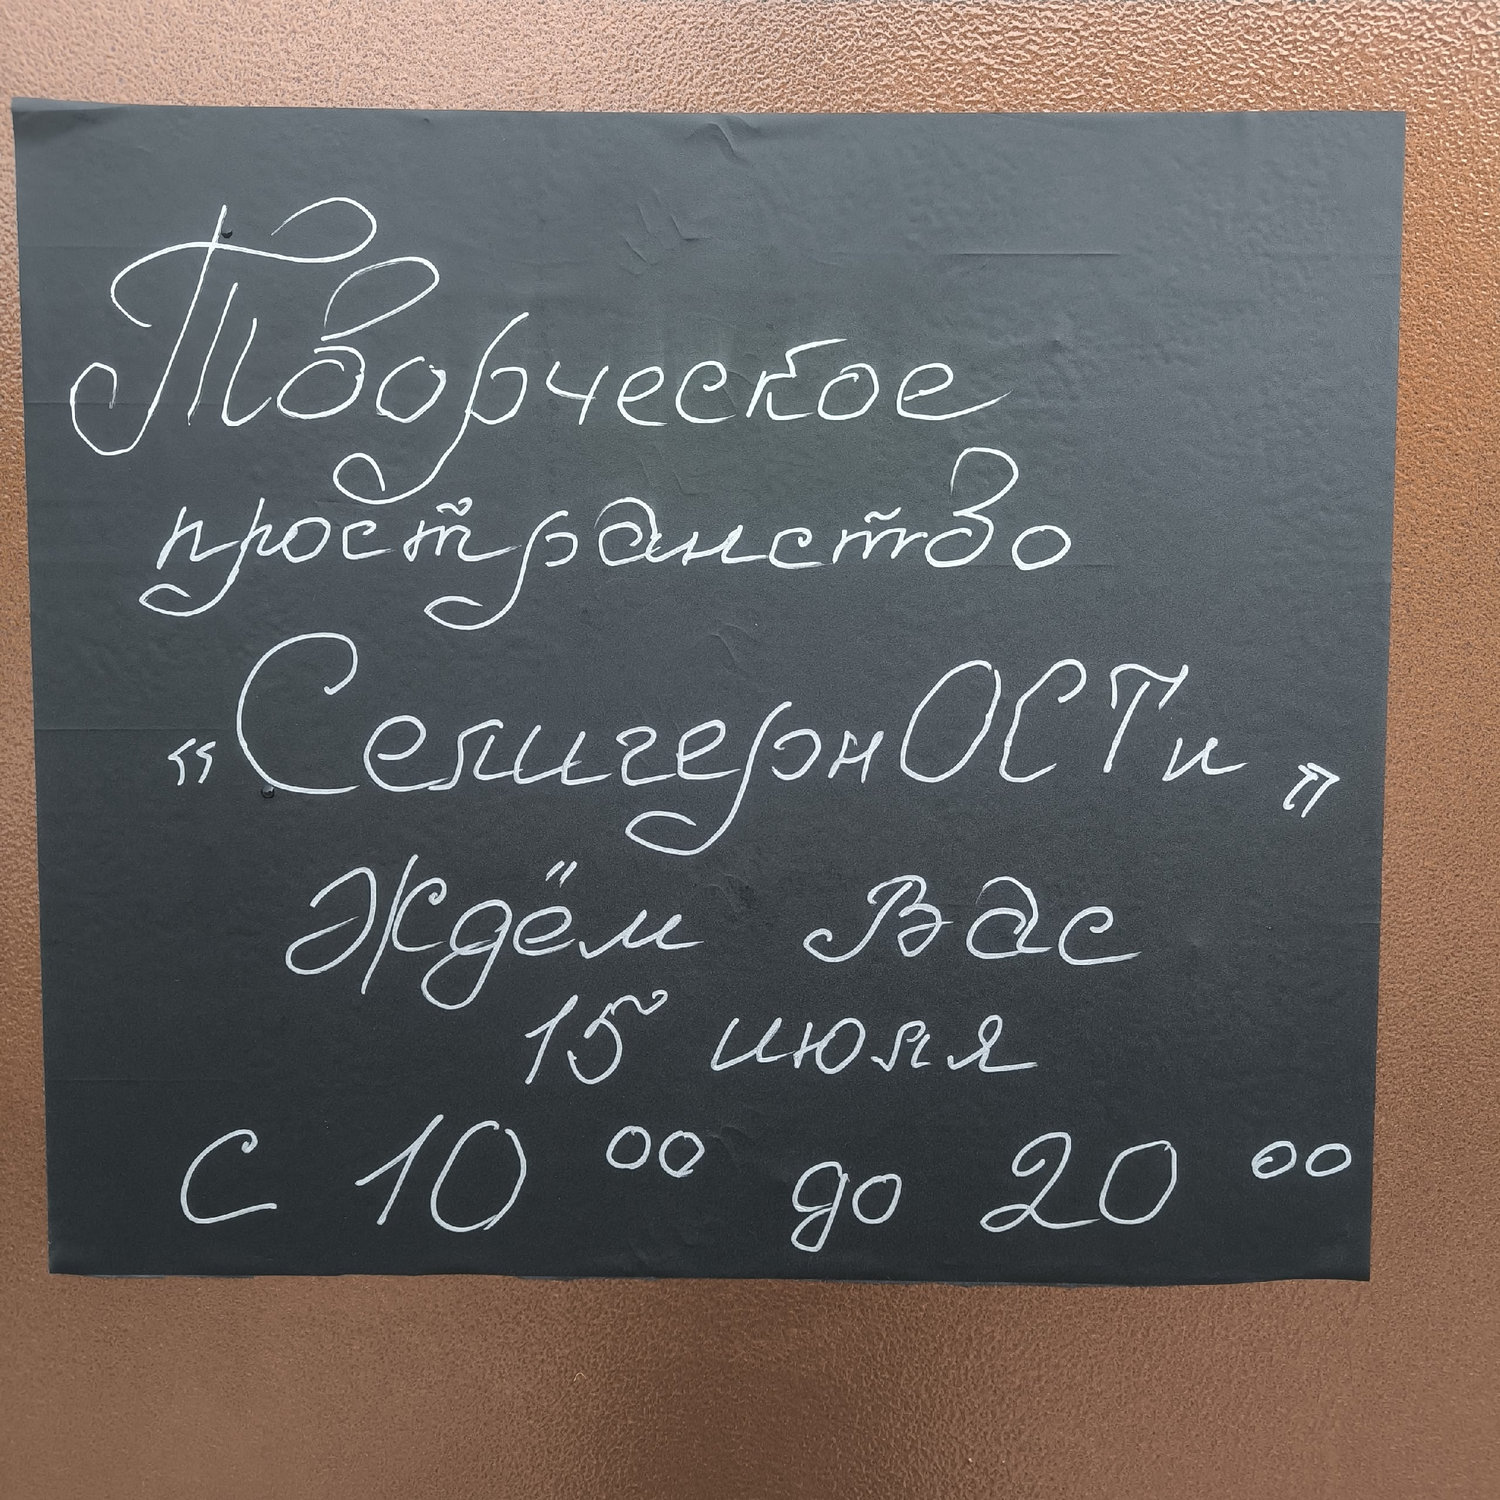 Творческое
пространство
"СелигернОСТи"
Ждём Вас
15 июля
с 10 00 до 20 00